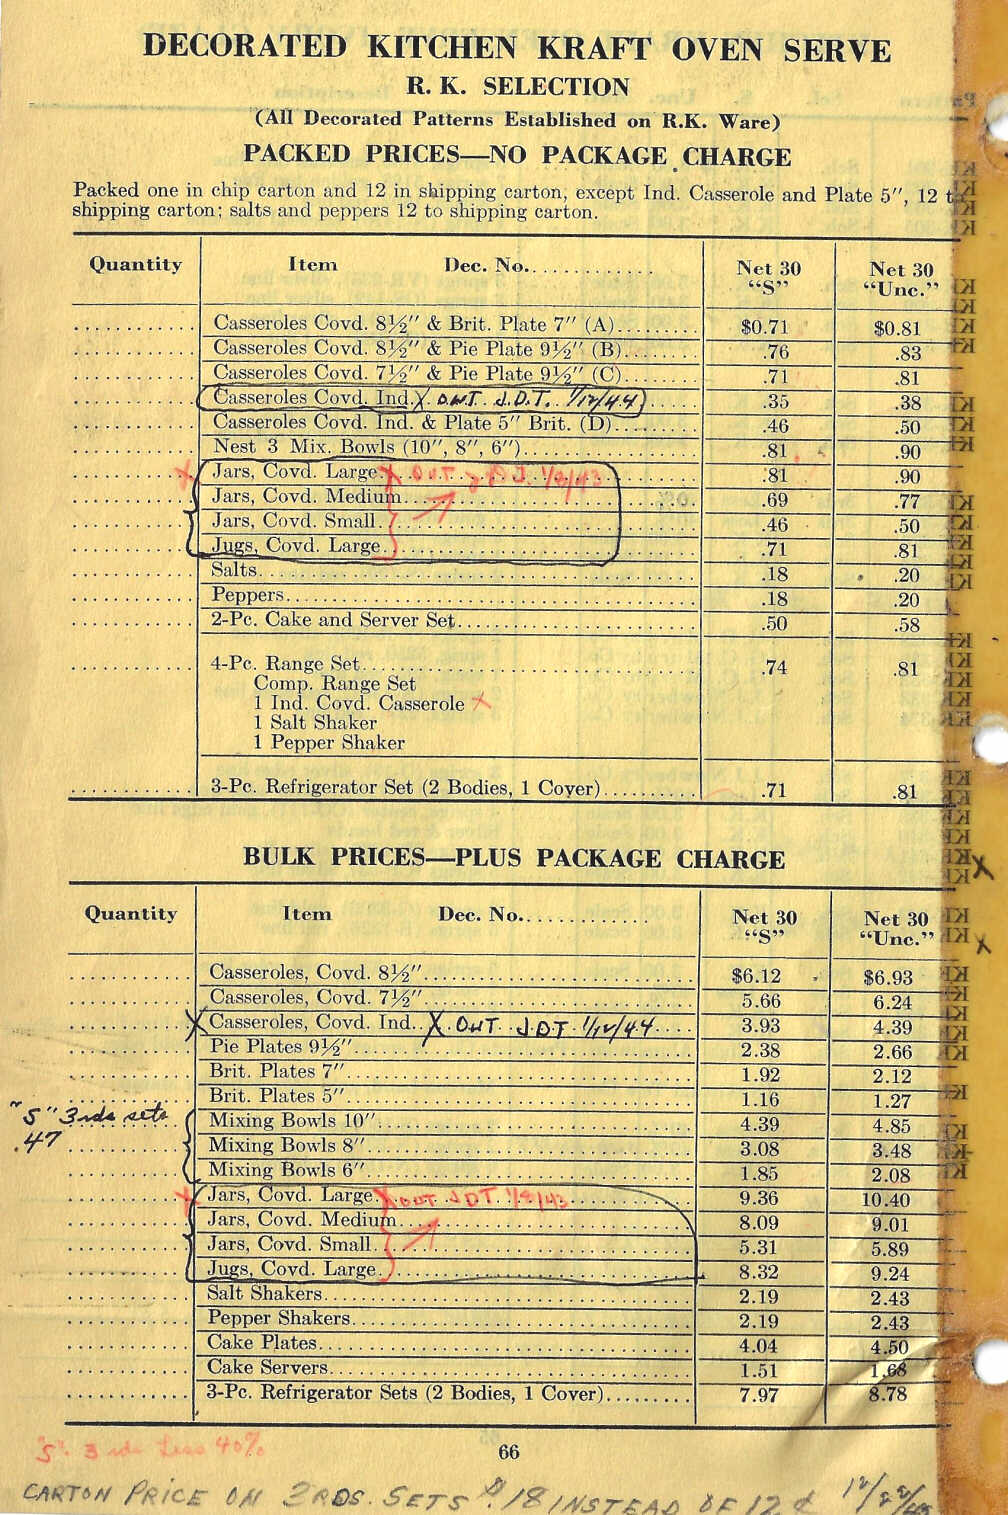 DECORATED KITCHEN KRAFT OVEN SERVE
R. K. SELECTION
(All Decorated Patterns Established on R.K. Ware)
PACKED PRICES—NO PACKAGE CHARGE
Packed one in chip carton and 12 in shipping carton, except Ind. Casserole and Plate 5″, 12 t
shipping carton; salts and peppers 12 to shipping carton.
Quantity Item Dec. No. Net 30 “S” Net 30 “Unc.”
Casseroles Covd. 8½″ & Brit. Plate 7″ (A) $0.71 $0.81
Casseroles Covd. 8½″ & Pie Plate 9½″ (B) .76 .83
Casseroles Covd. 7½″ & Pie Plate 9½″ (C) .71 .81
Casseroles Covd. Ind. X OUT J.D.T. 1/12/44 .35 .38
Casseroles Covd. Ind. & Plate 5″ Brit. (D) .46 .50
Nest 3 Mix. Bowls (10″, 8″, 6″) .81 .90
X Jars, Covd. Large X OUT .81 .90
Jars, Covd. Medium .69 .77
Jars, Covd. Small .46 .50
Jugs, Covd. Large .71 .81
Salts .18 .20
Peppers .18 .20
2-Pc. Cake and Server Set .50 .58
4-Pc. Range Set .74 .81
Comp. Range Set
1 Ind. Covd. Casserole X
1 Salt Shaker
1 Pepper Shaker
3-Pc. Refrigerator Set (2 Bodies, 1 Cover) .71 .81
BULK PRICES—PLUS PACKAGE CHARGE
Quantity Item Dec. No. Net 30 “S” Net 30 “Unc.”
Casseroles, Covd. 8½″ $6.12 $6.93
Casseroles, Covd. 7½″ 5.66 6.24
X Casseroles, Covd. Ind. X OUT J.D.T 1/12/44 3.93 4.39
Pie Plates 9½″ 2.38 2.66
Brit. Plates 7″ 1.92 2.12
Brit. Plates 5″ 1.16 1.27
"S" 3rds sets
.47
Mixing Bowls 10″ 4.39 4.85
Mixing Bowls 8″ 3.08 3.48
Mixing Bowls 6″ 1.85 2.08
X Jars, Covd. Large X OUT JDT 9.36 10.40
Jars, Covd. Medium 8.09 9.01
Jars, Covd. Small 5.31 5.89
Jugs, Covd. Large 8.32 9.24
Salt Shakers 2.19 2.43
Pepper Shakers 2.19 2.43
Cake Plates 4.04 4.50
Cake Servers 1.51 1.68
3-Pc. Refrigerator Sets (2 Bodies, 1 Cover) 7.97 8.78
"S" 3rds Less 40%
66
CARTON PRICE ON 3RDS. SETS $.18 INSTEAD OF 12¢